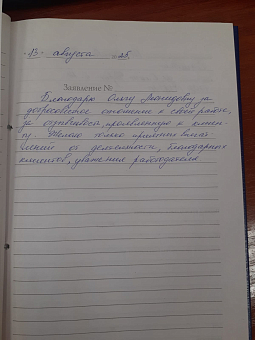 "13" августа 20 25.
Заявление №
Благодарю Ольгу Леонидовну за
добросовестное отношение к своей работе,
за отзывчивость, проявленную к клиен-
ту. Желаю только приятных впечат
лений от деятельности, благодарных
клиентов, уважения работодателя.